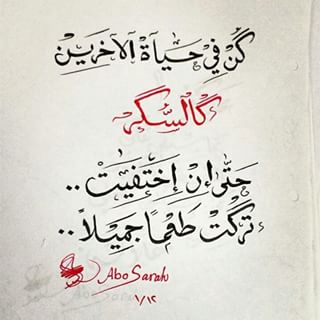 كُنْ في حَيَاة الآخَرين
كَالسُّكَّر
حَتىٰ إِنْ إِخْتَفَيْت ..
تَرَكْتَ طَعْمًا جَميلاً ..
Abo Sarah
١/١٢